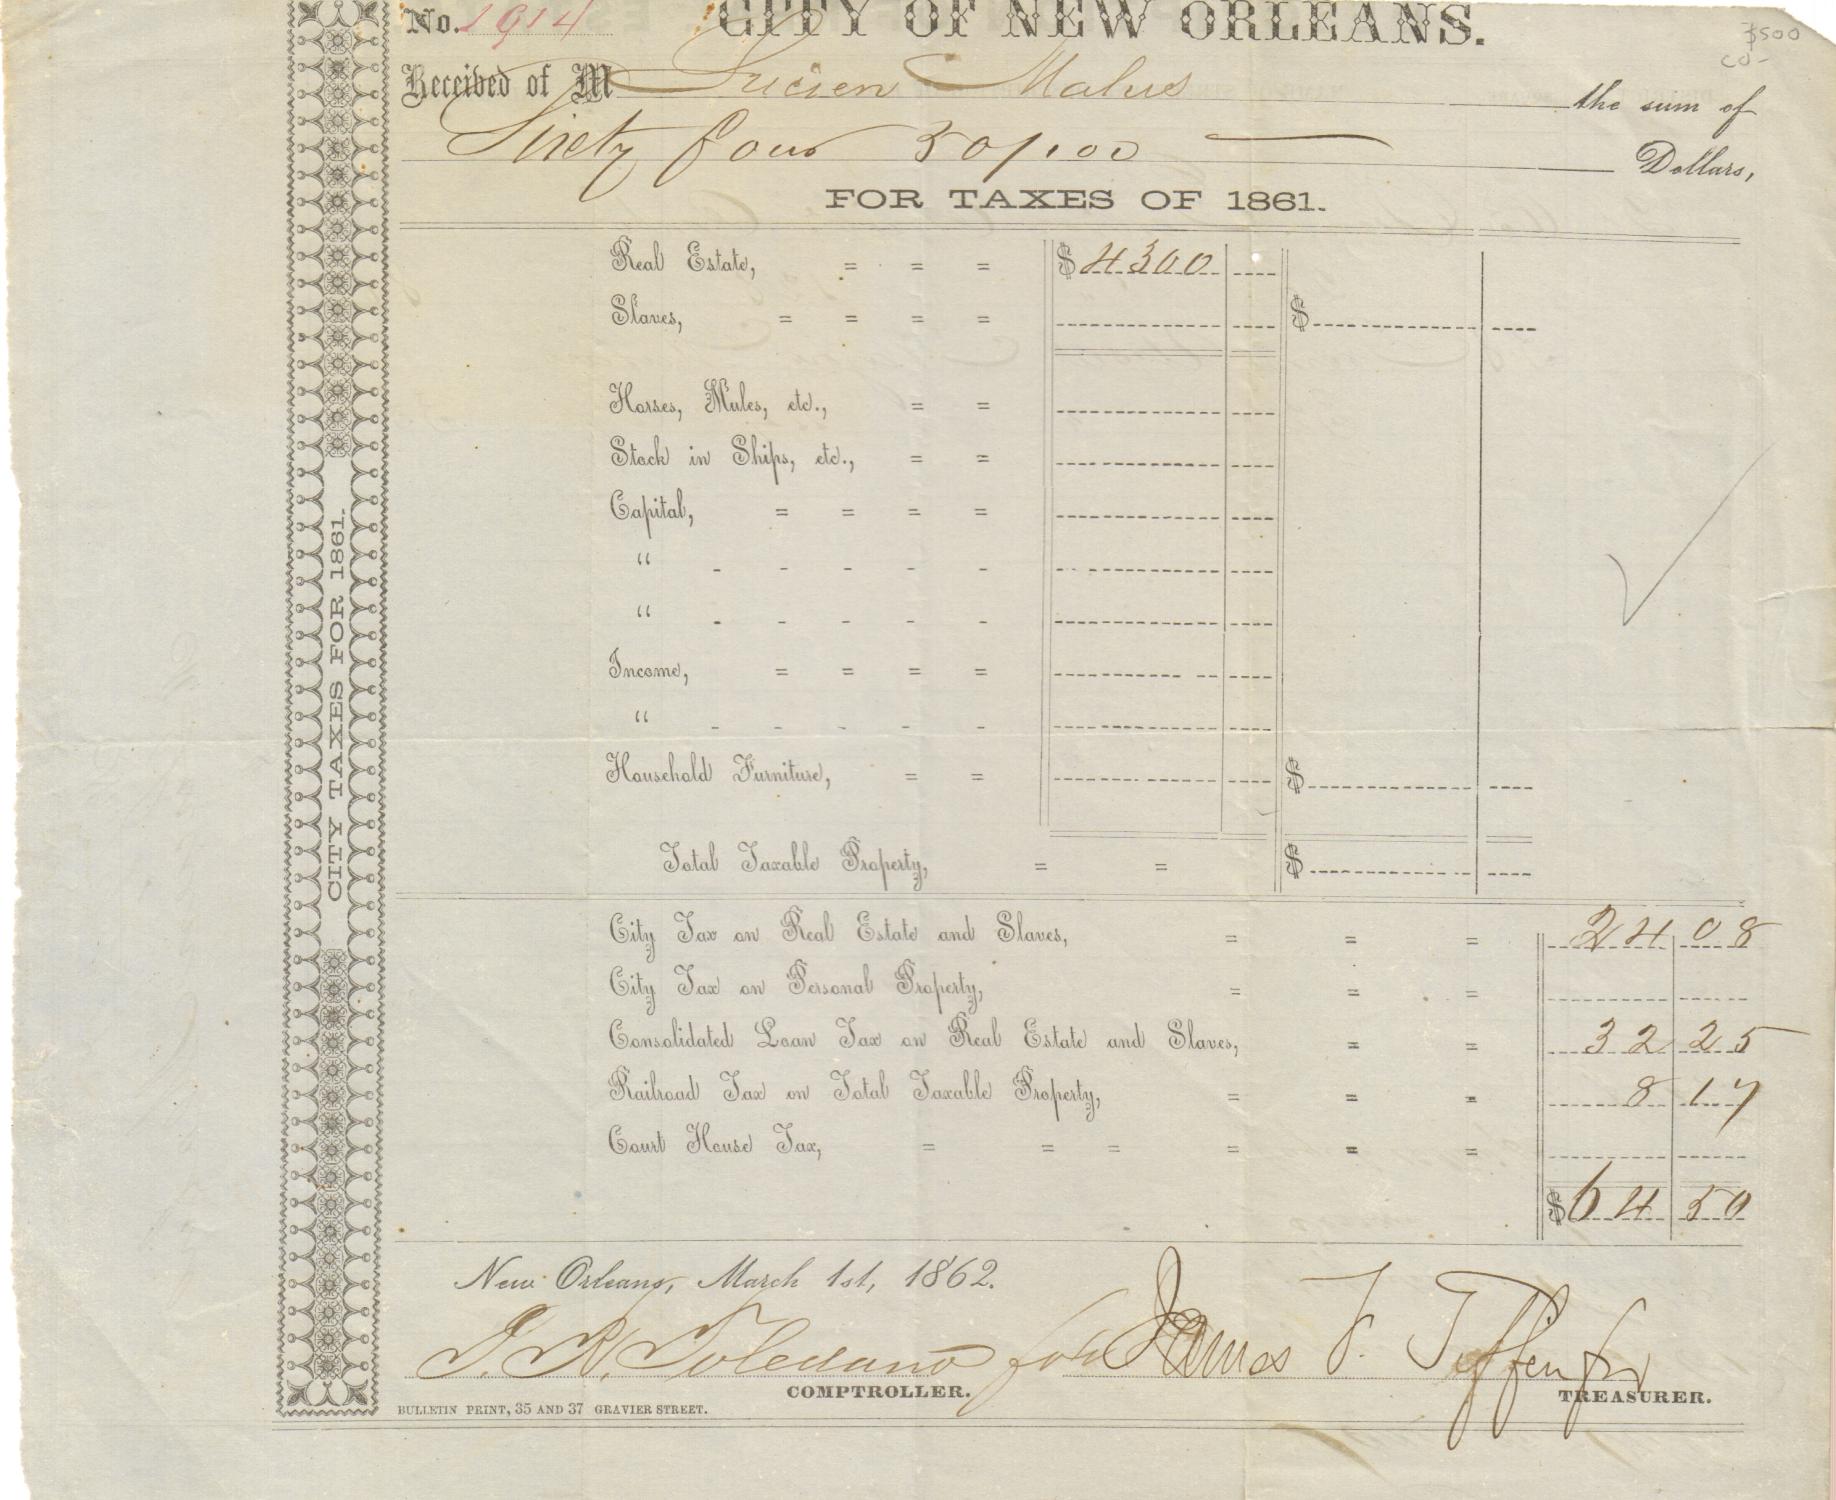 No. 1914 CITY OF NEW ORLEANS.
$500
CD-
Received of M Lucien Malus the sum of
Sixty four 50/100 Dollars,
FOR TAXES OF 1861.
Real Estate, = = = $ 4300
Slaves, = = = = $
Horses, Mules, etc., = =
Stock in Ships, etc., = =
Capital, = = = =
" - - - - -
" - - - - -
Income, = = = =
" - - - - -
Household Furniture, = = $
Total Taxable Property, = = $
City Tax on Real Estate and Slaves, = = = 24 08
City Tax on Personal Property, = = =
Consolidated Loan Tax on Real Estate and Slaves, = = 32 25
Railroad Tax on Total Taxable Property, = = = 8 17
Court House Tax, = = = = = =
$ 64 50
New Orleans, March 1st, 1862.
J. R. Toledano for James F. Tiffen
COMPTROLLER. TREASURER.
BULLETIN PRINT, 35 AND 37 GRAVIER STREET.
CITY TAXES FOR 1861.